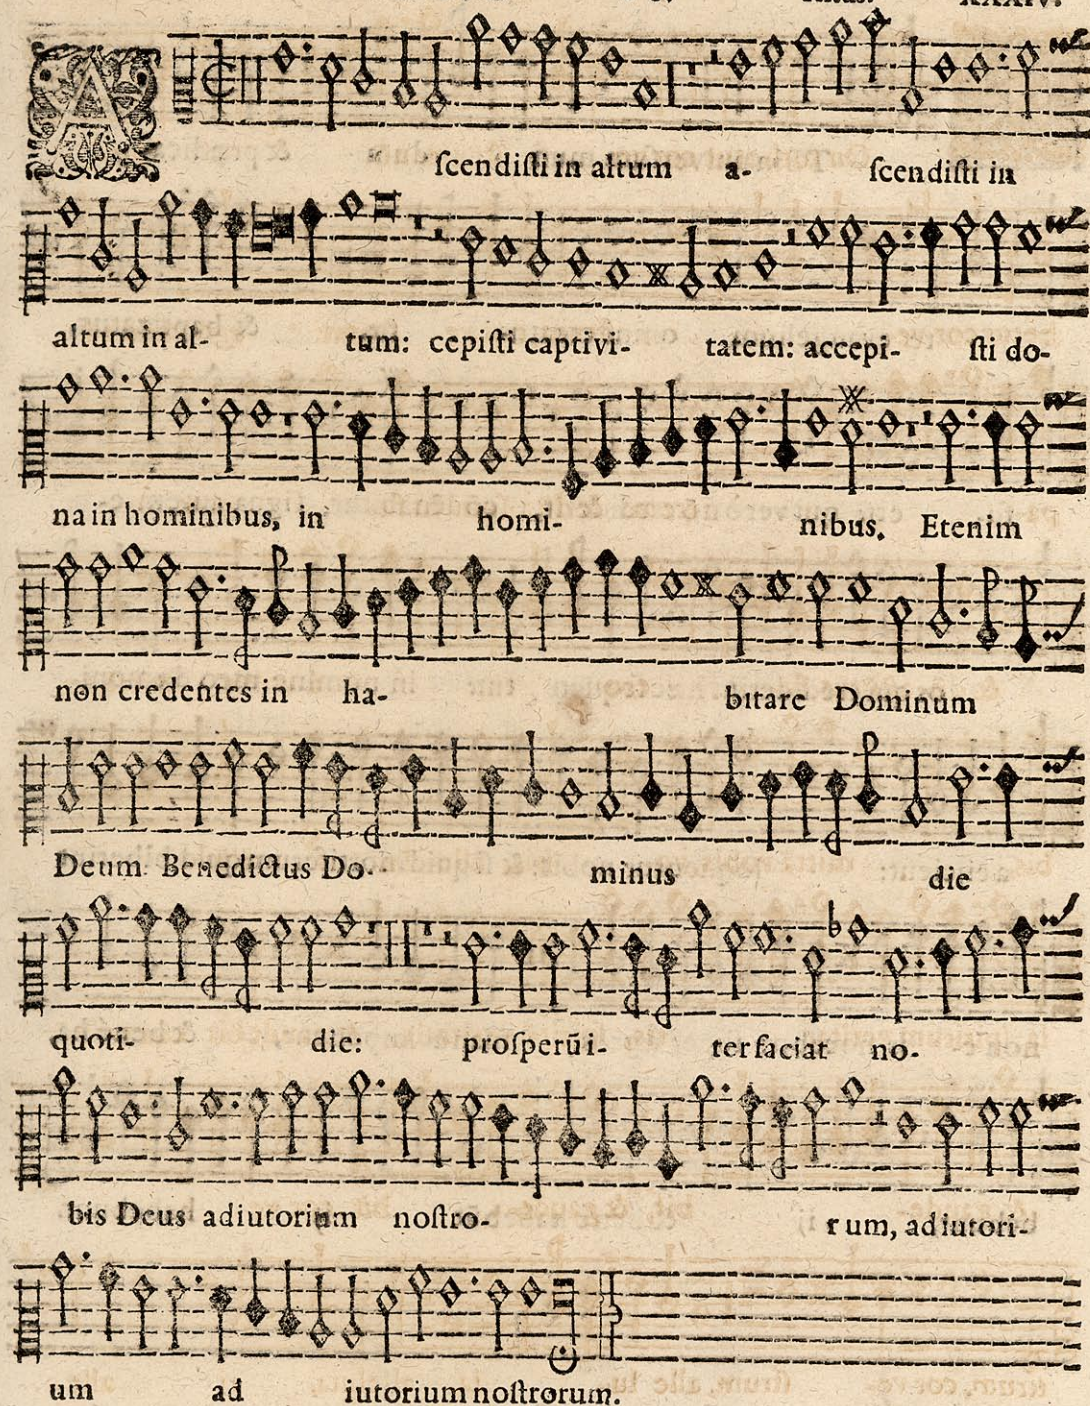 XXXIV.
A ſcendiſti in altum a- ſcendiſti in
altum in al- tum: cepiſti captivi- tatem: accepi- ſti do-
na in hominibus, in homi- nibus. Etenim
non credentes in ha- bitare Dominum
Deum Benedictus Do- minus die
quoti- die: proſperũ i- ter faciat no-
bis Deus adiutorium noſtro- rum, adiutori-
um ad iutorium noſtrorum.